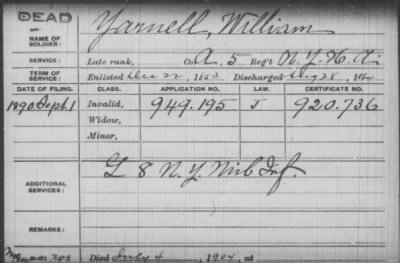 DEAD
NAME OF SOLDIER: Yarnell, William
SERVICE: Late rank, Co. A, 5 Reg't N.Y. H. A.
TERM OF SERVICE: Enlisted Dec 22, 1863 Discharged Aug 28, 1864
DATE OF FILING. CLASS. APPLICATION NO. LAW. CERTIFICATE NO.
1890. Sept. 1 Invalid, 949.195 J 920.736
Widow,
Minor,
ADDITIONAL SERVICES: L 8 N.Y. Inf.
REMARKS:
Died July 4, 1904, at